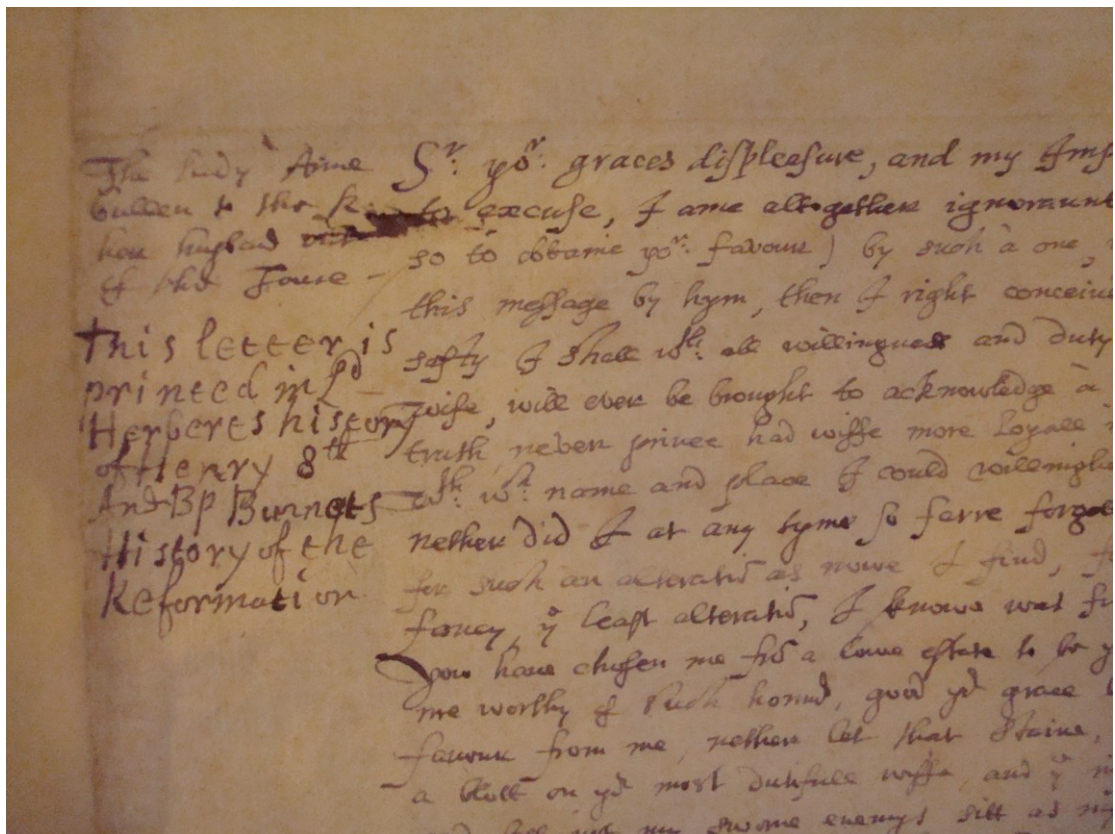 The Lady Anne
bullen to the K
her husband
of the Toure -
This letter is
printed in Ld
Herberts history
of Henry 8th
And BP Burnets
History of the
Reformation
Sr. yor. graces displeasure, and my Imp
to excuse, I ame altogether ignoraunt
so to obtaine yor. favour) by such a one,
this message by hym, then I right conceiv
safty I shall wth. all willingness and duty
wife, will ever be brought to acknowledge a
truth, never prince had wiffe more Loyall
wth. wh. name and place I could willinglie
nether did I at any tyme so farre forge
for such an alteratio as nowe I find,
fancy, ye least alteratio, I knowe wat
you have chosen me fro a lowe estate to be
me worthy of such honor, good yor grace
favour from me, nether let that Staine,
a blott on yor most dutifull wiffe, and ye
my sworne enemys sitt as my